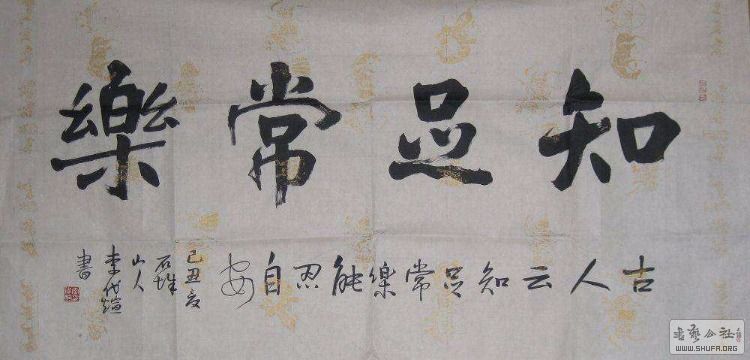 知足常樂
古人云知足常樂能忍自安
己丑夏
山人
書
書藝公社
WWW.SHUFA.ORG